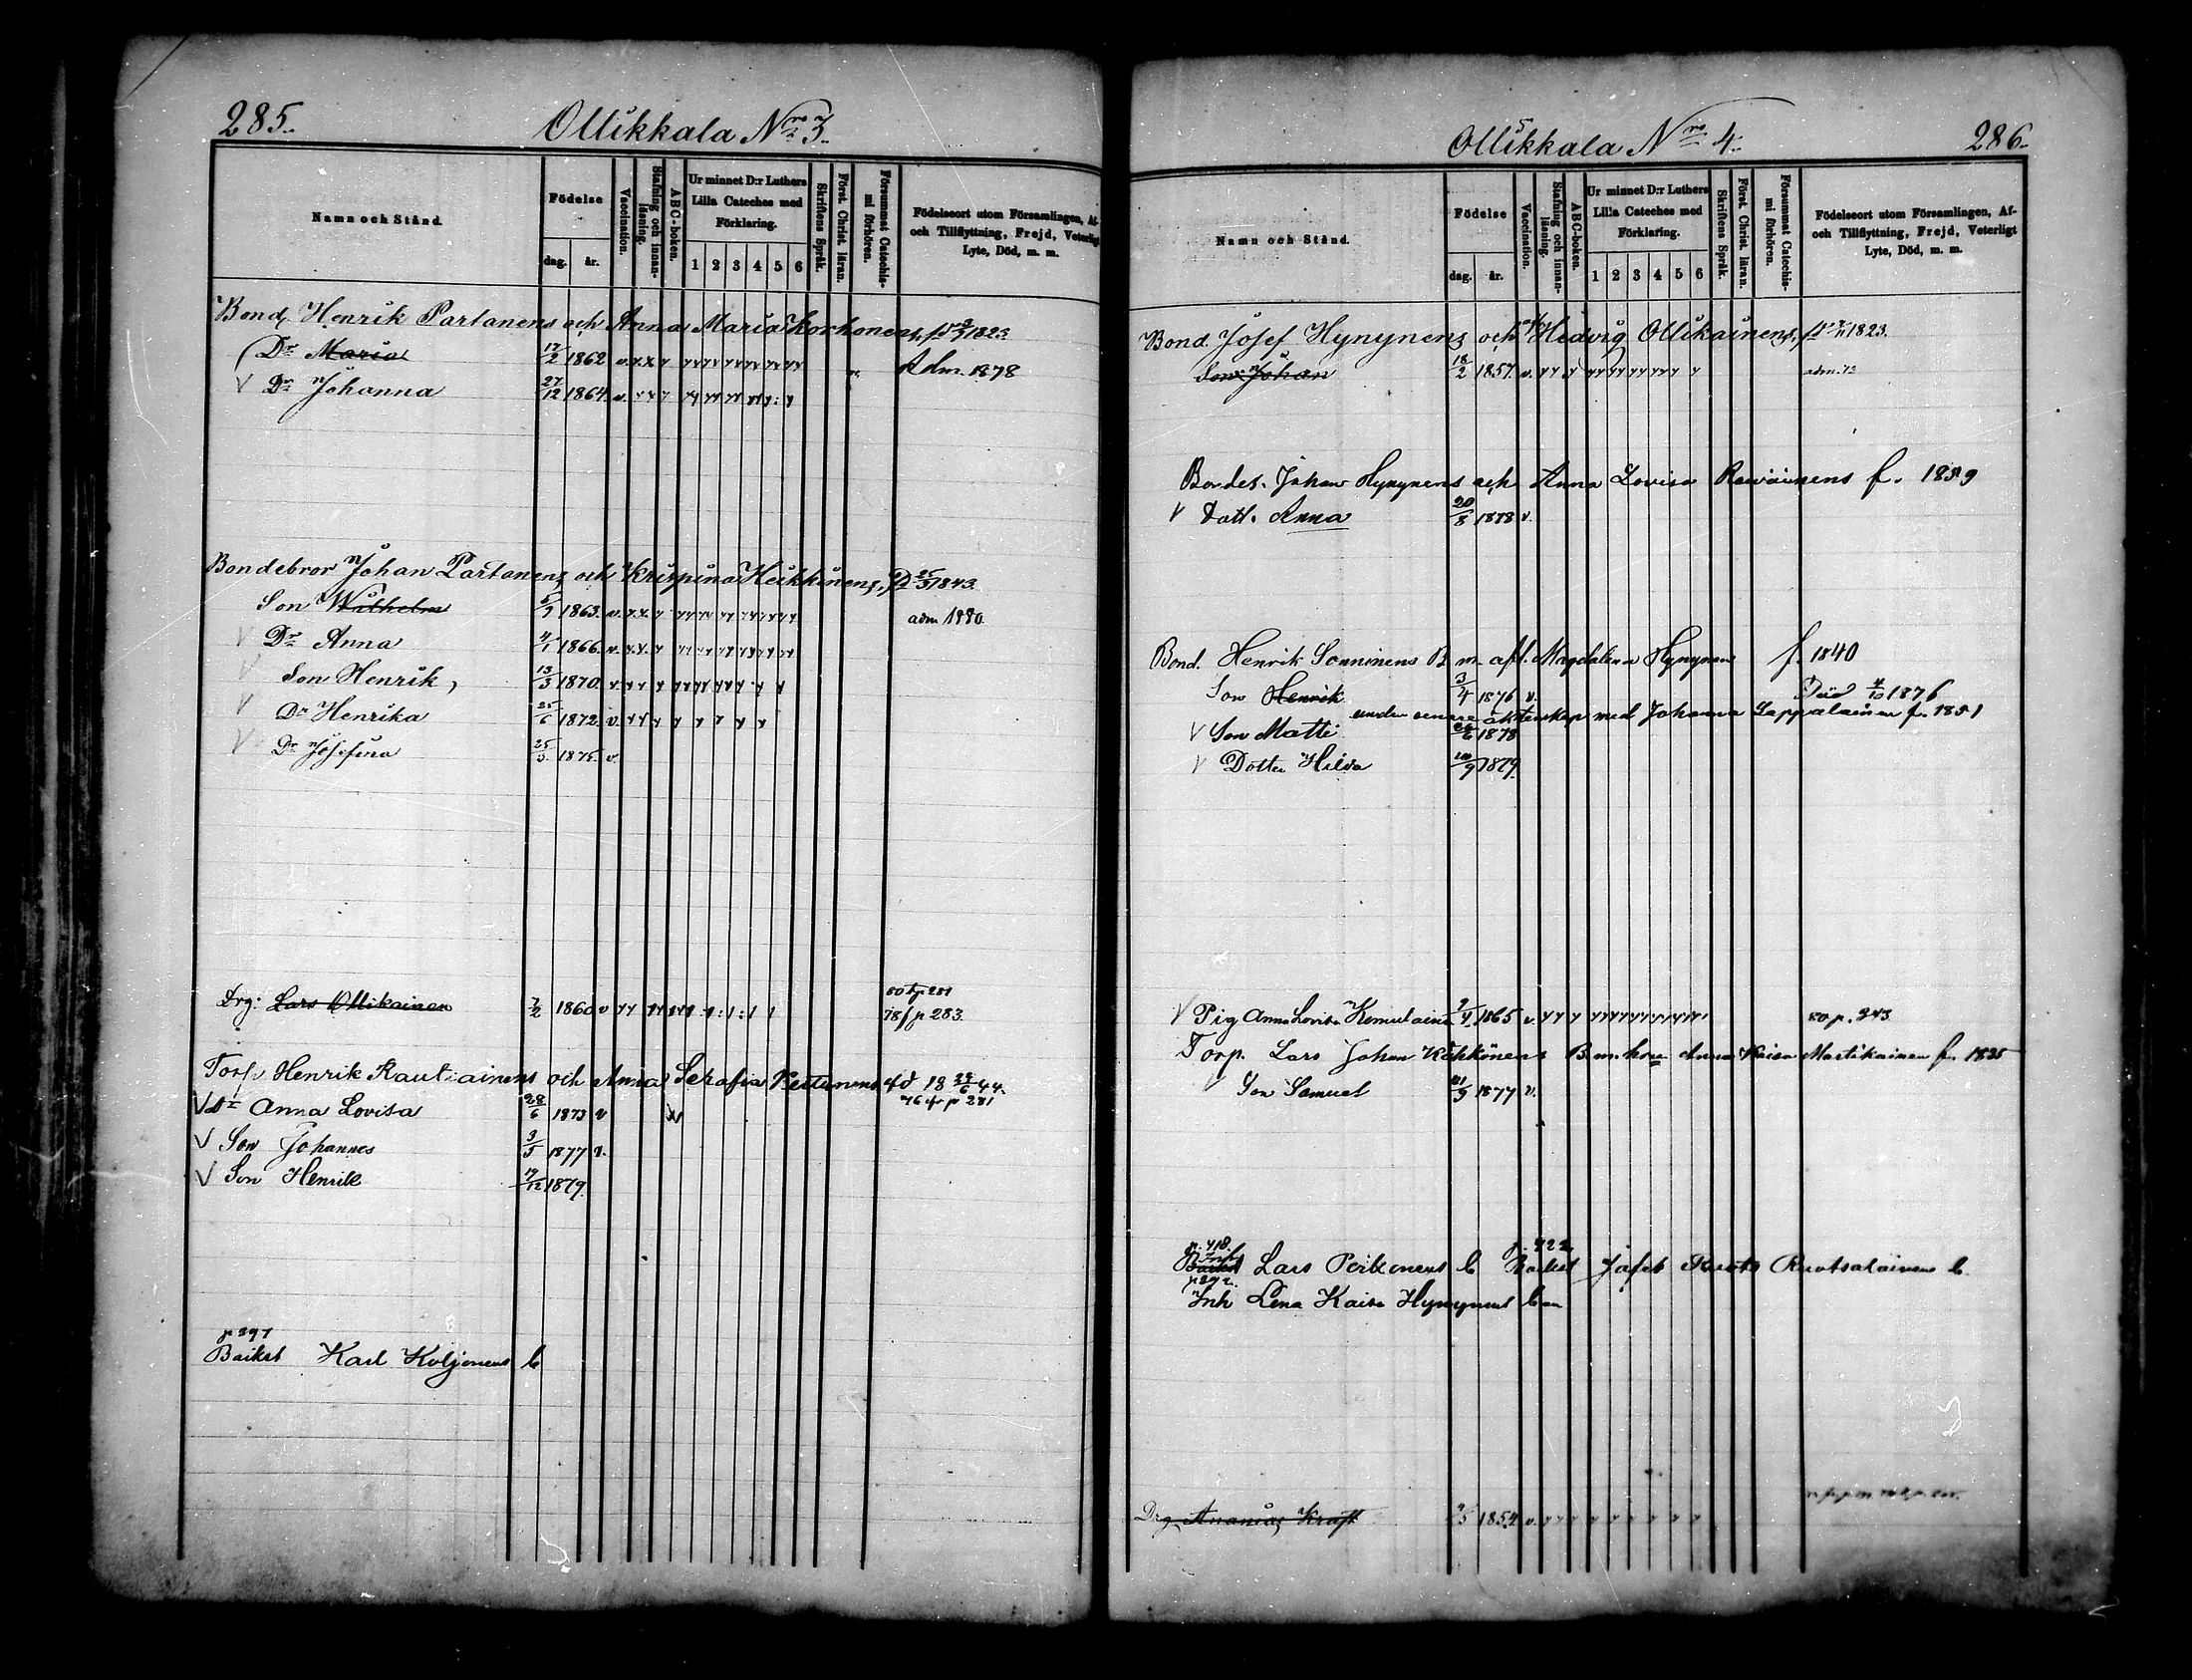 285.
Ollikkala Nro 3.
Namn och Stånd.
Födelse
dag.
år.
Vaccination.
Stafning och innan-läsning.
ABC-boken.
Ur minnet D:r Luthers Lilla Cateches med Förklaring.
1 2 3 4 5 6
Skriftens Språk.
Först. Christ. läran.
Försummat Catechis-mi förhören.
Födelseort utom Församlingen, Af- och Tillflyttning, Frejd, Veterligt Lyte, Död, m. m.
Bond. Henrik Partanens och Anna Maria Korhonens, 1823.
Dr Maria 17/2 1862 v. Adm. 1878
v Dr Johanna 27/12 1864. v.
Bondebror Johan Partanens och Krispina Heikkinens, 1843.
Son Wilhelm 1863. v. adm 1880.
v Dr Anna 4/1 1866. v.
v Son Henrik, 13/3 1870. v.
v Dr Henrika 25/6 1872. v.
v Dr Josefina 25/3 1875. v.
80 t p 281
Drg: Lars Ollikainen 7/2 1860 v 78 f p 283.
Torp. Henrik Rautiainens och Anna Serafia 18 44.
76 fr p 281
v Dr Anna Lovisa 28/6 1873 v
v Son Johannes 3/5 1877 v.
v Son Henrik 17/12 1879.
p 297
Backst Karl Koljonens b
Ollikkala Nro 4.
286.
Namn och Stånd.
Födelse
dag.
år.
Vaccination.
Stafning och innan-läsning.
ABC-boken.
Ur minnet D:r Luthers Lilla Cateches med Förklaring.
1 2 3 4 5 6
Skriftens Språk.
Först. Christ. läran.
Försummat Catechis-mi förhören.
Födelseort utom Församlingen, Af- och Tillflyttning, Frejd, Veterligt Lyte, Död, m. m.
Bond. Josef Hynynens och Hedvig Ollikainens, 1823.
Son Johan 18/2 1857. v. adm.
Bondes. Johan Hynynens och Anna Lovisa f. 1859
v Dott. Anna 20/8 1878 v.
Bond. Henrik Sonninens B m. afl. Magdalena Hynynen f. 1840
Son Henrik 3/4 1876 v. Död 1876
under senare äktenskap med Johanna Lappalainen f. 1851
v Son Matti 1878
v Dotter Hilda 1879.
v Pig Anna Lovisa Komulainen 1865 v. 80 p. 243
Torp. Lars Johan Kähkönens B m. hou Anna Kaisa Martikainen f. 1835
v Son Samuel 21/9 1877 v.
p. 418. p. 422
Inh Backst Lars b Backst Jafet Ruotsalainens b.
Inh Lena Kaisa Hynynens ban
Drg Ananias Kraft 1854 v.